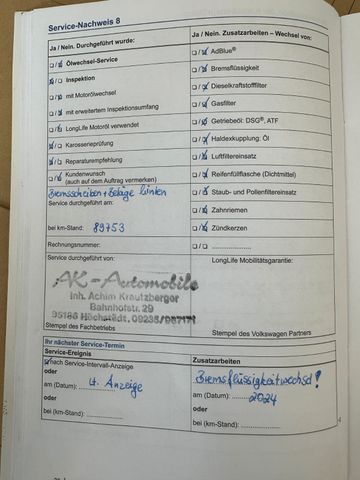 Service-Nachweis 8
Ja / Nein. Durchgeführt wurde:
Ölwechsel-Service
Inspektion
mit Motorölwechsel
mit erweitertem Inspektionsumfang
LongLife Motoröl verwendet
Karosserieprüfung
Reparaturempfehlung
Kundenwunsch
(auch auf dem Auftrag vermerken)
Bremsscheiben + Beläge hinten
Service durchgeführt am:
bei km-Stand: 89753
Rechnungsnummer:
Service durchgeführt von:
AK-Automobile
Inh. Achim Krautzberger
Bahnhofstr. 29
95186 Höchstädt, 09235/967171
Stempel des Fachbetriebs
Ja / Nein. Zusatzarbeiten – Wechsel von:
AdBlue®
Bremsflüssigkeit
Dieselkraftstofffilter
Gasfilter
Getriebeöl: DSG®, ATF
Haldexkupplung: Öl
Luftfiltereinsatz
Reifenfüllflasche (Dichtmittel)
Staub- und Pollenfiltereinsatz
Zahnriemen
Zündkerzen
LongLife Mobilitätsgarantie:
Stempel des Volkswagen Partners
Ihr nächster Service-Termin
Service-Ereignis
nach Service-Intervall-Anzeige
oder
am (Datum): lt. Anzeige
oder
bei (km-Stand):
Zusatzarbeiten
Bremsflüssigkeitwechsel!
am (Datum): 2024
oder
bei (km-Stand):